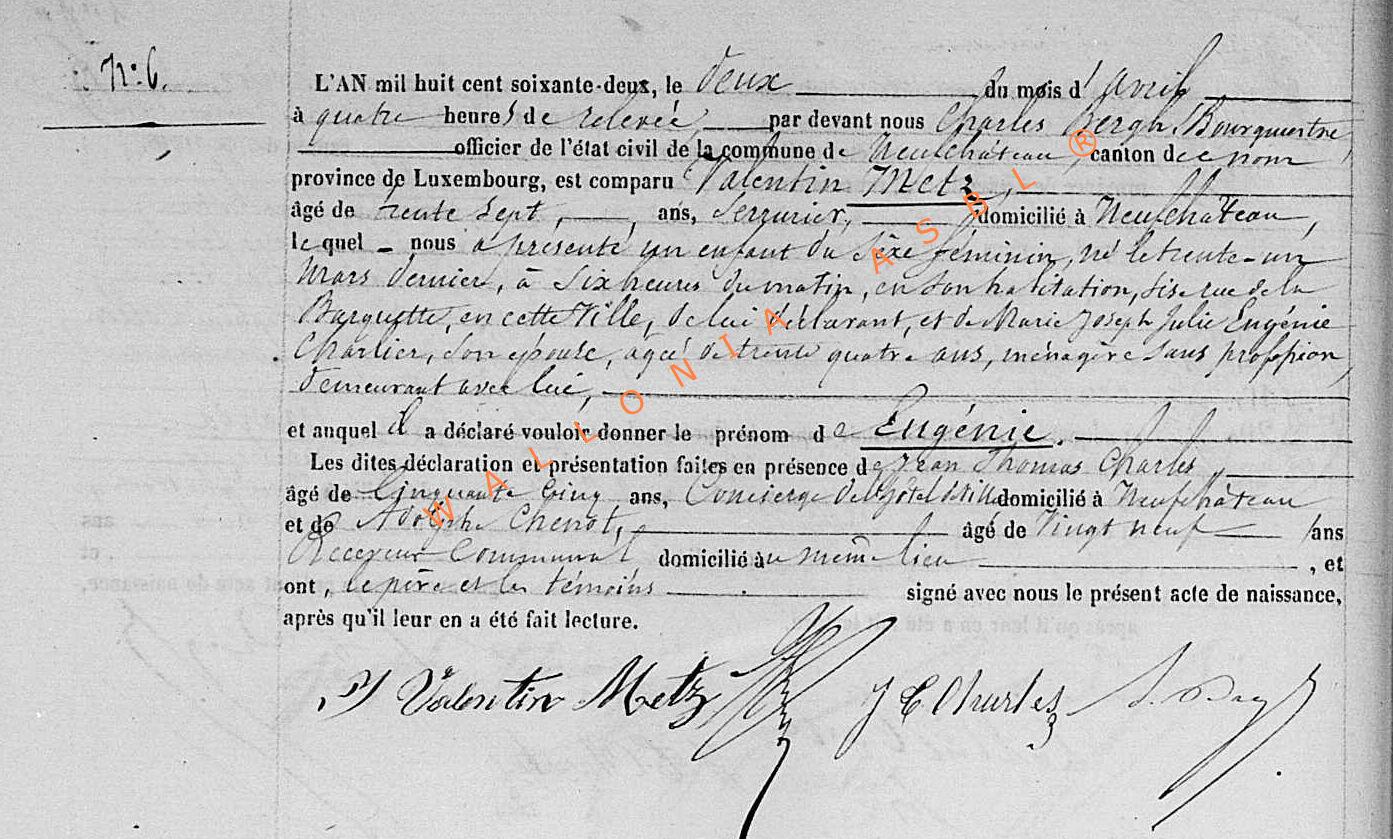 n° 6.
L'AN mil huit cent soixante-deux, le deux du mois d'avril
à quatre heures de relevée, par devant nous Charles Bergh, Bourgmestre
officier de l'état civil de la commune de Neufchâteau, canton de ce nom
province de Luxembourg, est comparu Valentin Metz,
âgé de trente sept, ans, Serrurier, domicilié à Neufchâteau,
lequel nous a présenté un enfant du sèxe féminin, né le trente-un
Mars dernier, à six heures du matin, en son habitation, sise rue de la
Barquette, en cette Ville, de lui déclarant, et de Marie Joseph Julie Eugénie
Charlier, son épouse, âgée de trente quatre ans, ménagère sans profession,
demeurant avec lui,
et auquel il a déclaré vouloir donner le prénom de Eugénie.
Les dites déclaration et présentation faites en présence de Jean Thomas Charles,
âgé de Cinquante Cinq ans, Concierge de l'hôtel de Ville domicilié à Neufchâteau
et de Adolphe Chenot, âgé de vingt neuf ans
Receveur Communal, domicilié au même lieu, et
ont, le père et les témoins signé avec nous le présent acte de naissance,
après qu'il leur en a été fait lecture.
Valentin Metz J T Charles
WALLONIA ASBL ®